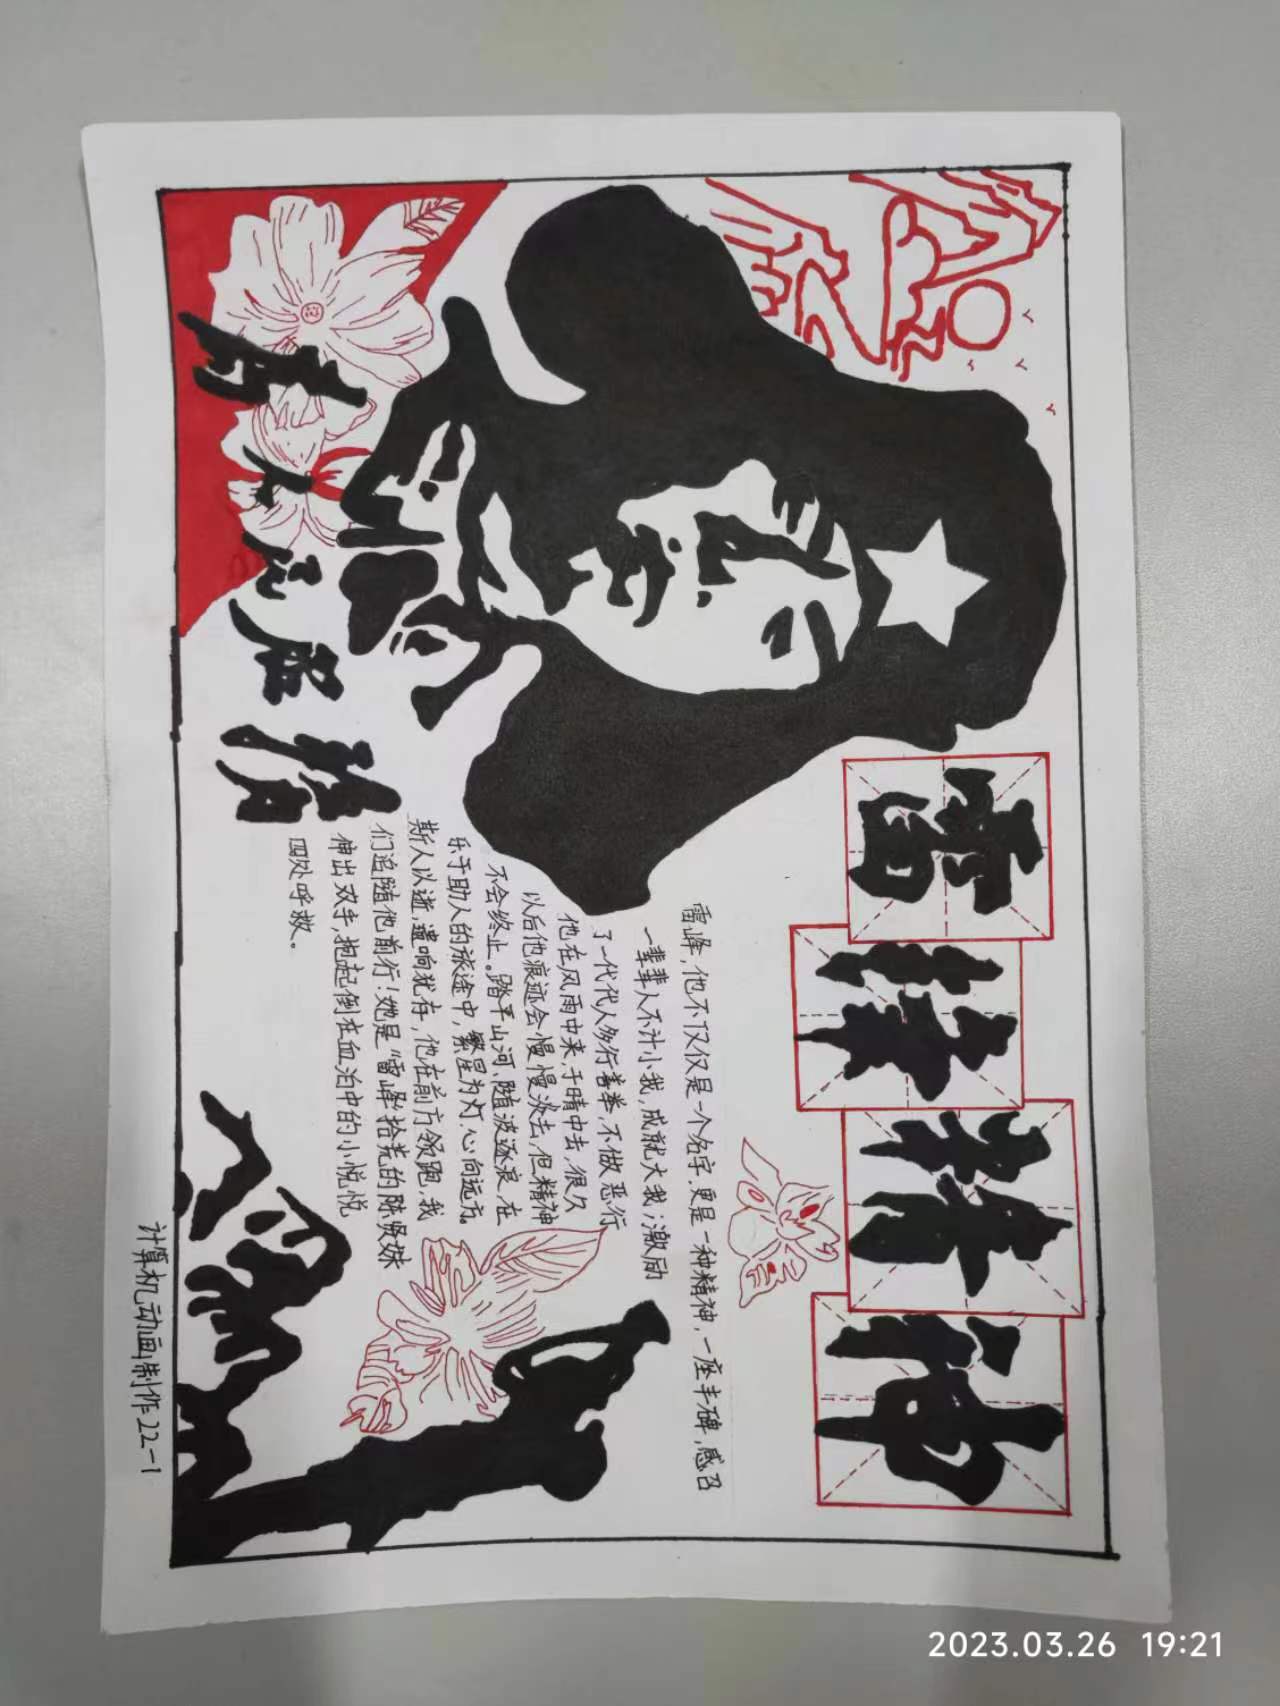 雷锋精神
雷峰,他不仅仅是一个名字,更是一种精神,一座丰碑,感召
一辈辈人不计小我,成就大我;激励
了一代代人多行善举,不做恶行
他在风雨中来,于晴中去,很久
以后他痕迹会慢慢淡去,但精神
不会终止。踏平山河,随波逐浪,在
乐于助人的旅途中,繁星为灯,心向远方。
斯人以逝,遗响犹存,他在前方领跑,我
们追随他前行!她是“雷峰”拾荒的陈贤妹
伸出双手,抱起倒在血泊中的小悦悦
四处呼救。
计算机动画制作22-1
2023.03.26 19:21